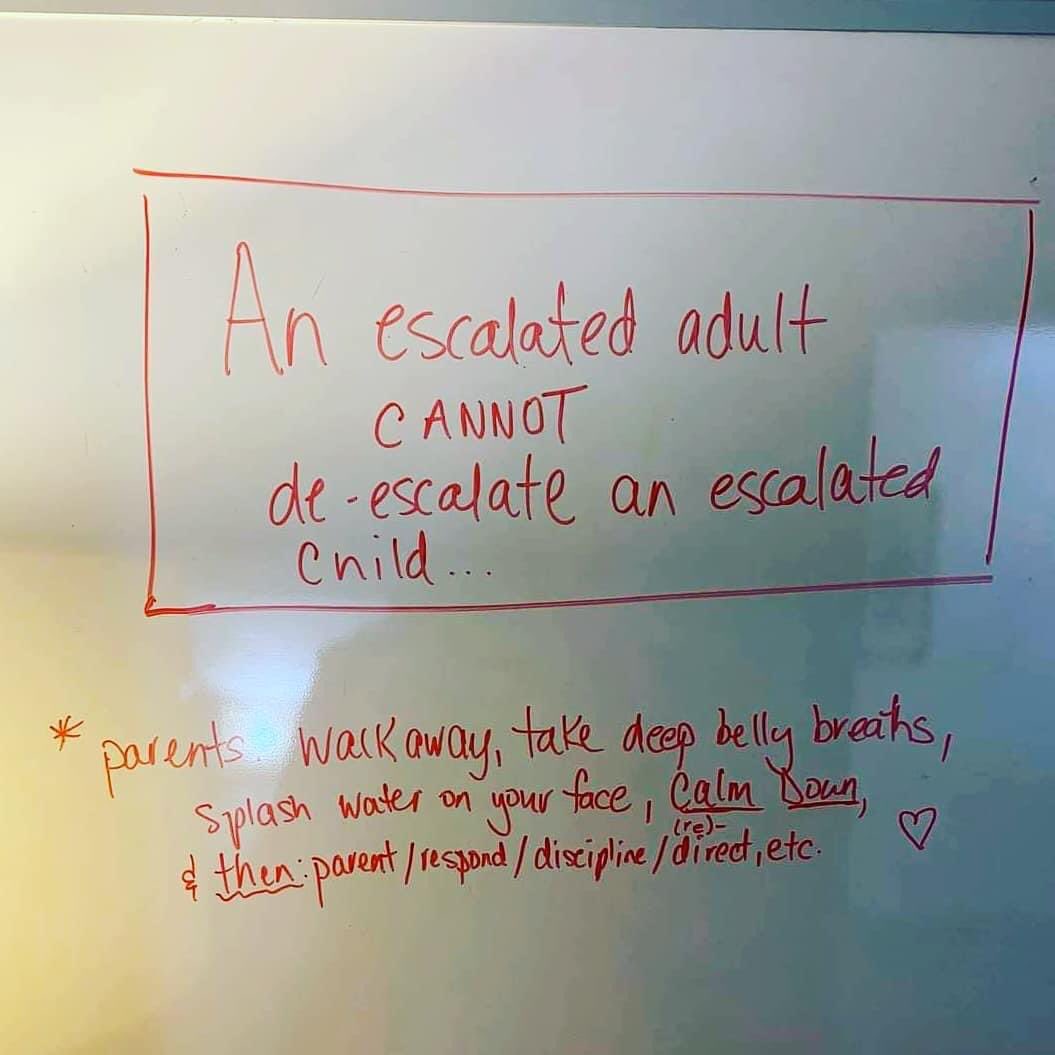 An escalated adult
CANNOT
de-escalate an escalated
child...
* parents: walk away, take deep belly breaths,
splash water on your face, Calm Down,
& then: parent/respond/discipline/(re)-direct, etc. ♡